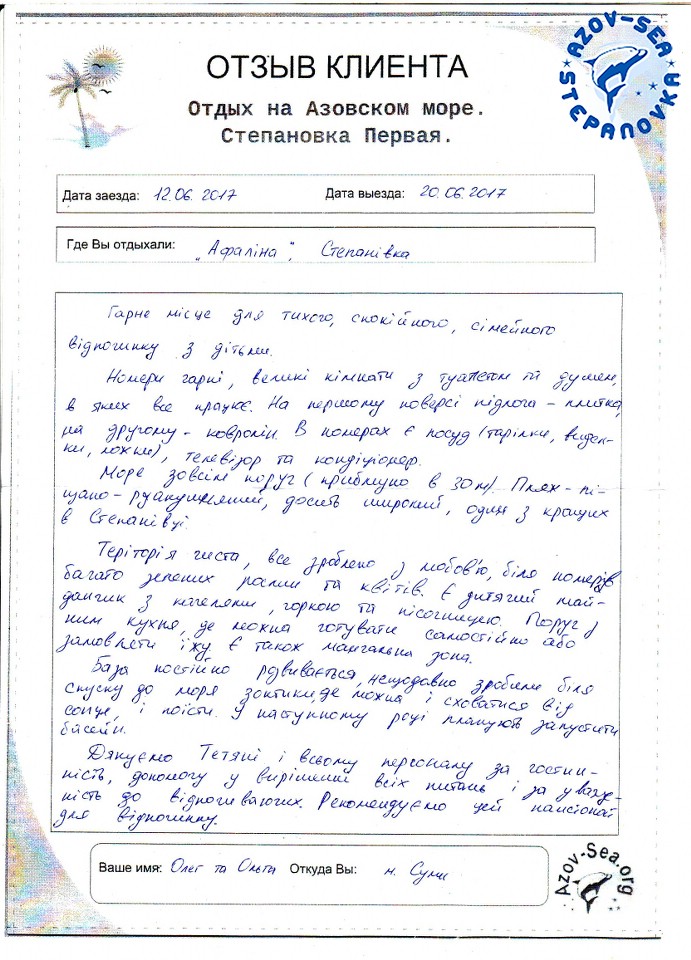 AZOV-SEA
STEPANOVKA
ОТЗЫВ КЛИЕНТА
Отдых на Азовском море.
Степановка Первая.
Дата заезда: 12.06.2017 Дата выезда: 20.06.2017
Где Вы отдыхали: „Афаліна", Степанівка
Гарне місце для тихого, спокійного, сімейного
відпочинку з дітьми.
Номери гарні, великі кімнати з туалетом та душем,
в яких все працює. На першому поверсі підлога - плитка,
на другому - ковролін. В номерах є посуд (тарілки, виделки,
ки, ложки), телевізор та кондіціонер.
Море зовсім поруч (приблизно в 30 м). Пляж - пі-
щано-ракушняний, досить широкий, один з кращих
в Степанівці.
Теріторія чиста, все зроблено з любов'ю, біля номерів
багато зелених рослин та квітів. Є дитячий май-
данчик з качелями, горкою та пісочницею. Поруч з
ним кухня, де можна готувати самостійно або
замовляти їжу. Є також мангальна зона.
База постійно розвивається, нещодавно зробили біля
спуску до моря зонтики, де можна і сховатися від
сонця, і поїсти. У наступному році планують запустити
басейн.
Дякуємо Тетяні і всьому персоналу за гостин-
ність, допомогу у вирішенні всіх питань і за уваж-
ність до відпочиваючих. Рекомендуємо цей пансіонат
для відпочинку.
Ваше имя: Олег та Ольга Откуда Вы: м. Суми
Azov-Sea.org